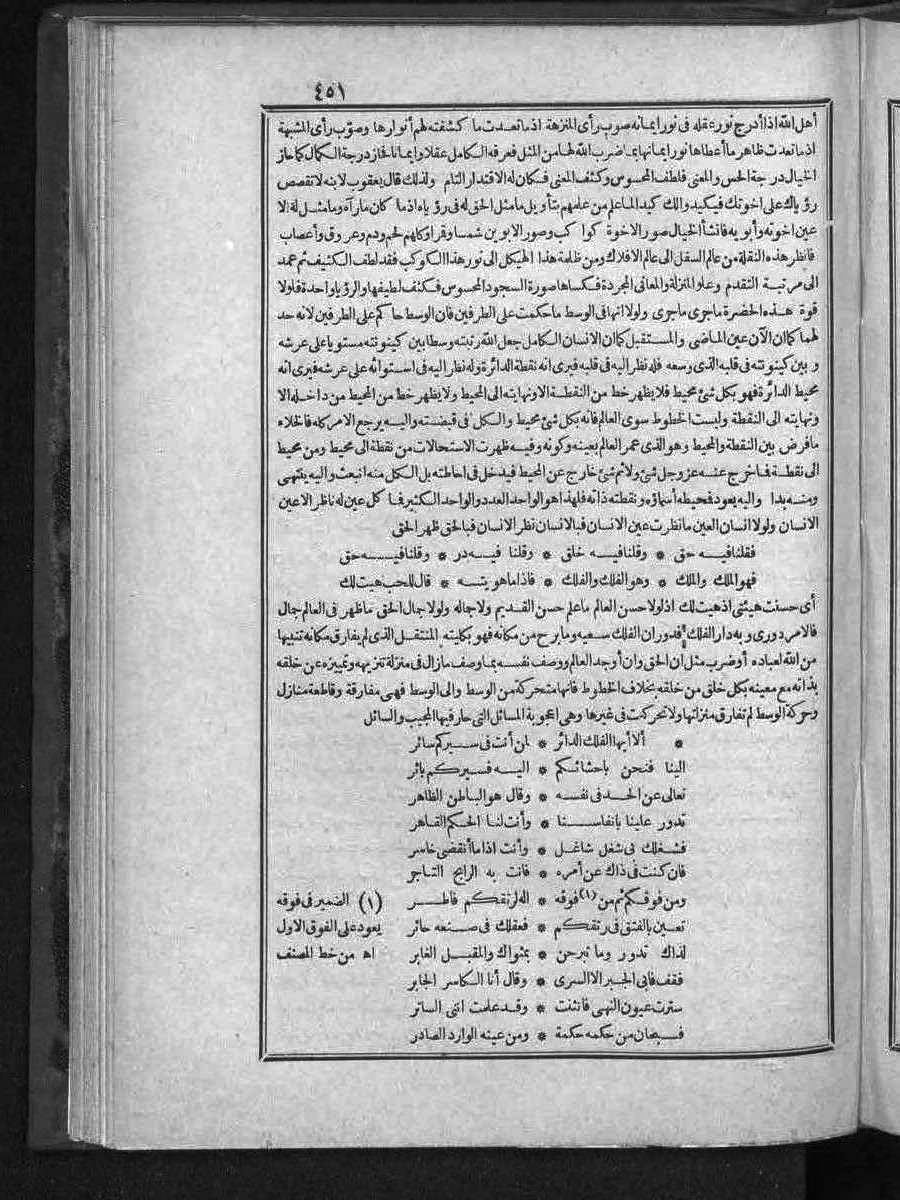 ٤٥١
أهل الله اذا أدرج نور عقله فى نور ايمانه صوب رأى المنزهة اذ ما تعدت ما كشفته لهم أنوارها وصوّب رأى المشبهة
اذ ما تعدت ظاهر ما أعطاها نور ايمانها بما ضرب الله لها من المثل فعرفه الكامل عقلا وايمانا فحاز درجة الكمال كما حاز
الخيال درجة الحس والمعنى فلطف المحسوس وكثف المعنى فكان له الاقتدار التام ولذلك قال يعقوب لابنه لا تقصص
رؤياك على اخوتك فيكيدوا لك كيدا لما علم من علمهم بتأويل ما مثل الحق له فى رؤياه اذ ما كان ما رآه وما مثل له الا
عين اخوته وأبويه فانشأ الخيال صور الاخوة كواكب وصور الابوين شمسا وقرا وكلهم لحم ودم وعروق وأعصاب
فانظر هذه النقلة من عالم السفل الى عالم الافلاك ومن ظلمة هذا الهيكل الى نور هذا الكوكب فقد لطف الكثيف ثم عمد
الى مرتبة التقدم وعلو المنزلة والمعانى المجردة فكساها صورة السجود المحسوس فكثف لطيفها والرؤيا واحدة فلولا
قوة هذه الحضرة ما جرى ما جرى ولولا انها فى الوسط ما حكمت على الطرفين فان الوسط حاكم على الطرفين لانه حد
لهما كما ان الآن عين الماضى والمستقبل كما ان الانسان الكامل جعل الله رتبته وسطا بين كينونته مستويا على عرشه
وبين كينونته فى قلبه الذى وسعه فله نظر اليه فى قلبه فيرى انه نقطة الدائرة وله نظر اليه فى استوائه على عرشه فيرى انه
محيط الدائرة فهو بكل شئ محيط فلا يظهر خط من النقطة الا ونهايته الى المحيط ولا يظهر خط من المحيط من داخله الا
ونهايته الى النقطة وليست الخطوط سوى العالم فانه بكل شئ محيط والكل فى قبضته واليه يرجع الامر كله فالخلاء
ما فرض بين النقطة والمحيط وهو الذى عمر العالم بعينه وكونه وفيه ظهرت الاستحالات من نقطة الى محيط ومن محيط
الى نقطة فما خرج عنه عز وجل شئ ولا ثم شئ خارج عن المحيط فيدخل فى احاطته بل الكل منه انبعث واليه ينتهى
ومنه بدا واليه يعود فحيطه أسماؤه ونقطته ذاته فلهذا هو الواحد العدد والواحد الكثير فما كل عين له ناظر الا عين
الانسان ولولا انسان العين ما نظرت عين الانسان فبالانسان نظر الانسان فبالحق ظهر الحق
فقلنا فيه حق * وقلنا فيه خلق * وقلنا فيه در * وقلنا فيه حق
فهو الملك والملك * وهو الفلك والفلك * فاذا ما هو يته * قال للحب هيت لك
أى حسنت هيئتى اذ هيت لك اذ لولا حسن العالم ما علم حسن القديم ولا جماله ولولا جمال الحق ما ظهر فى العالم جمال
فالامر دورى وبه دار الفلك فدوران الفلك سعيه وما برح من مكانه فهو بكليته المنتقل الذى لم يفارق مكانه تنبيها
من الله لعباده أو ضرب مثل ان الحق وان أوجد العالم ووصف نفسه بما وصف ما زال فى منزلة تنزيهه وتميزه عن خلقه
بذاته مع معيته بكل خلق من خلقه بخلاف الخطوط فانها متحركة من الوسط والى الوسط فهى مفارقة وقاطعة منازل
وحركة الوسط لم تفارق منزلتها ولا تحركت فى غيرها وهى اعجوبة المسائل التى حار فيها المجيب والسائل
* ألا أيها الفلك الدائر * لمن أنت فى سيركم سائر
الينا فنحن باحشائكم * اليه فسيركم بائر
تعالى عن الحد فى نفسه * وقال هو الباطن الظاهر
تدور علينا بانفاسنا * وأنت لنا الحكم القاهر
فشغلك بى شغل شاغل * وأنت اذا ما انقضى خاسر
فان كنت فى ذاك عن أمره * فانت به الرابح التاجر
ومن فوقكم ثم من (١) فوقه * اله لرتقكم فاطر
(١) الضمير فى فوقه
تعين بالفتق فى رتقكم * فعقلك فى صنعه حائر
يعود على الفوق الاول
لذاك تدور وما تبرحن * بمثواك والمقبل الغابر
اه من خط المصنف
فقف فابى الجبر الا السرى * وقال أنا الكاسر الجابر
سترت عيون النهى فانثنت * وقد علمت اننى الساتر
فسبحان من حكمه حكمة * ومن عينه الوارد الصادر